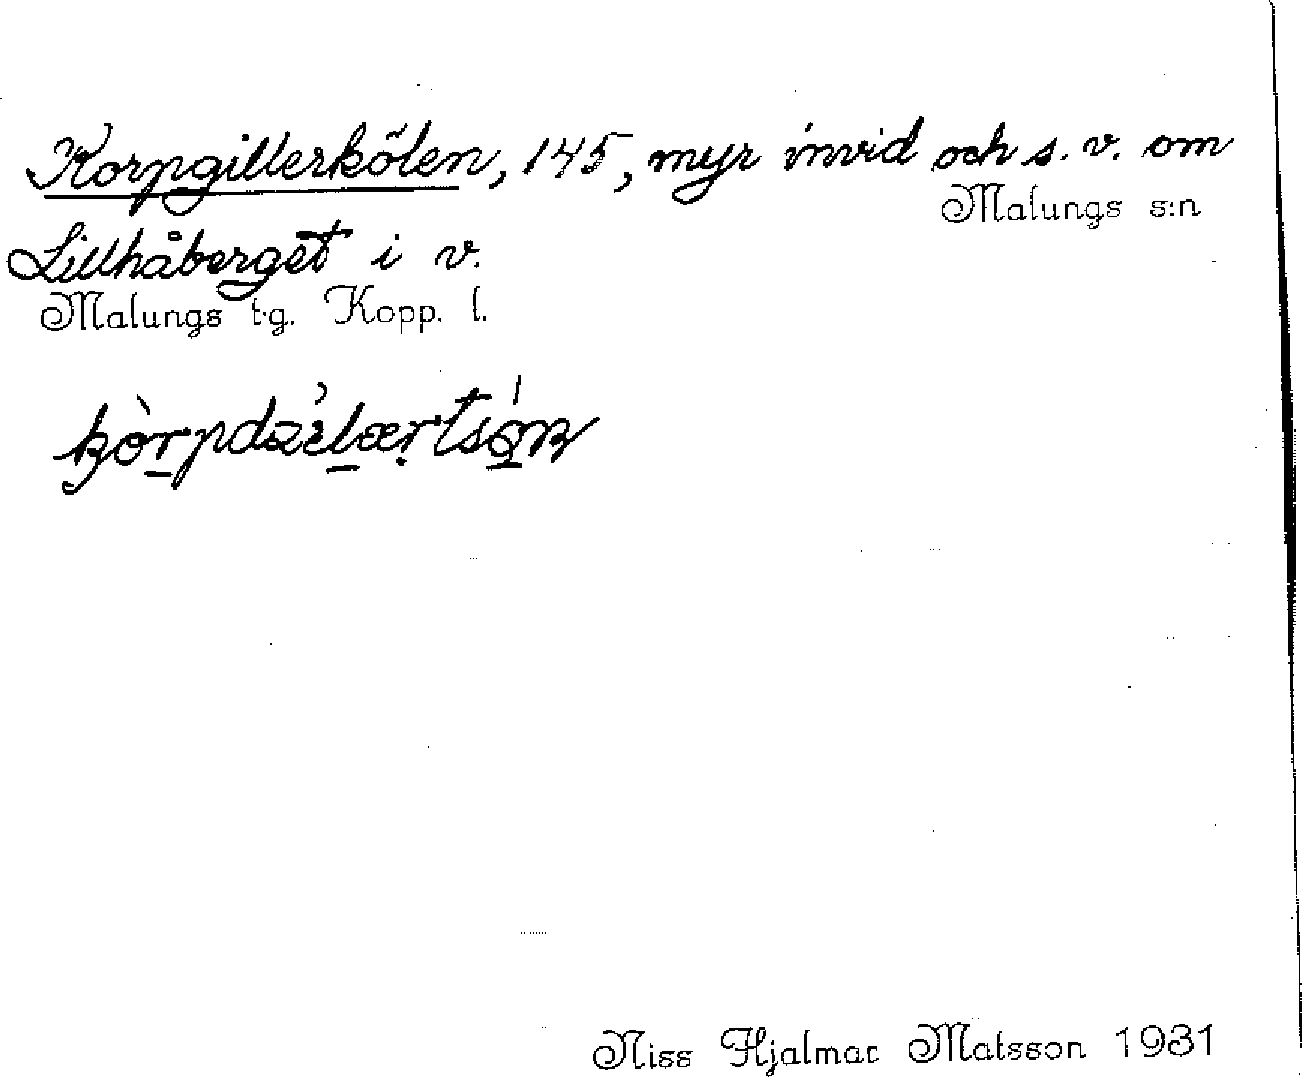 Korpgillerkölen, 145, myr invid och s. v. om
Malungs s:n
Lillhåberget i v.
Malungs t.g. Kopp. l.
Niss Hjalmar Matsson 1931